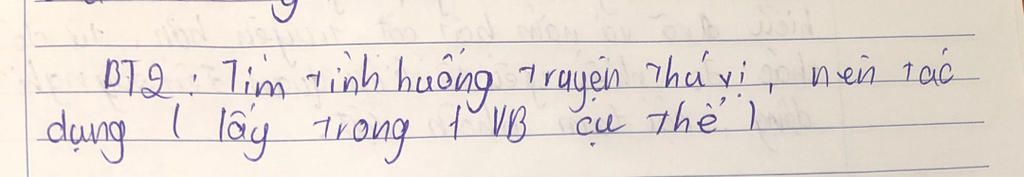 BT2 : Tìm tình huống truyện thú vị, nên tác
dụng ( lấy trong 1 VB cụ thể )